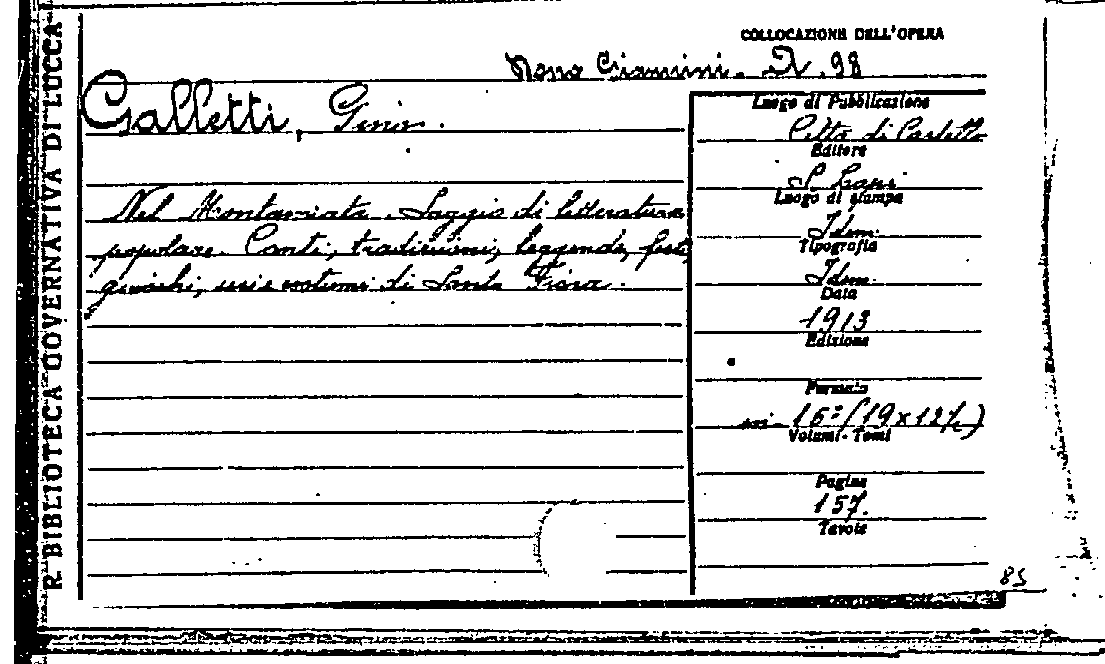 R. BIBLIOTECA GOVERNATIVA DI LUCCA
COLLOCAZIONE DELL'OPERA
Giannini. 98
Galletti,
Luogo di Pubblicazione
Città di Castello
Editore
S. Lapi
Luogo di stampa
Idem.
Tipografia
Idem.
Data
1913
Edizione
Formato
in-16° (19x12½)
Volumi-Tomi
Pagine
157.
Tavole
Nel Montamiata. Saggio di letteratura
popolare. Canti, tradizioni, leggende, feste
giuochi, usi e costumi di Santa Fiora.
85